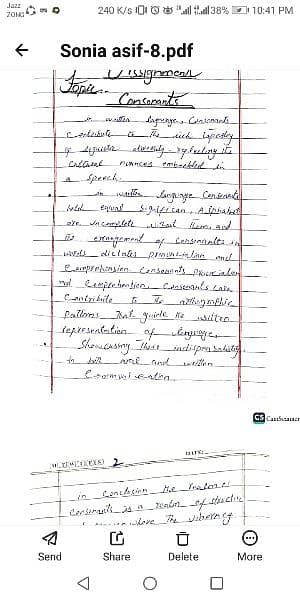 Jazz
ZONG
240 K/s 38% 10:41 PM
Sonia asif-8.pdf
Assignment
Topic
Consonants
in written language, Consonants
Contribute to the rich tapestry
of linguistic diversity, reflecting the
Cultural nuances embedded in
a Speech.
in written language Consonants
hold equal significan, Alphabet
are incomplete without them, and
the arrangement of Consonants in
words dictates pronunciation and
Comprehension Consonants
and Comprehension, Consonants
Contribute to the orthographic
patterns that guide the written
representation of language,
Showcasing their
in both and written
Communication.
CS CamScanner
2
in Conclusion the
Consonants is a realm of
where the
Send Share Delete More